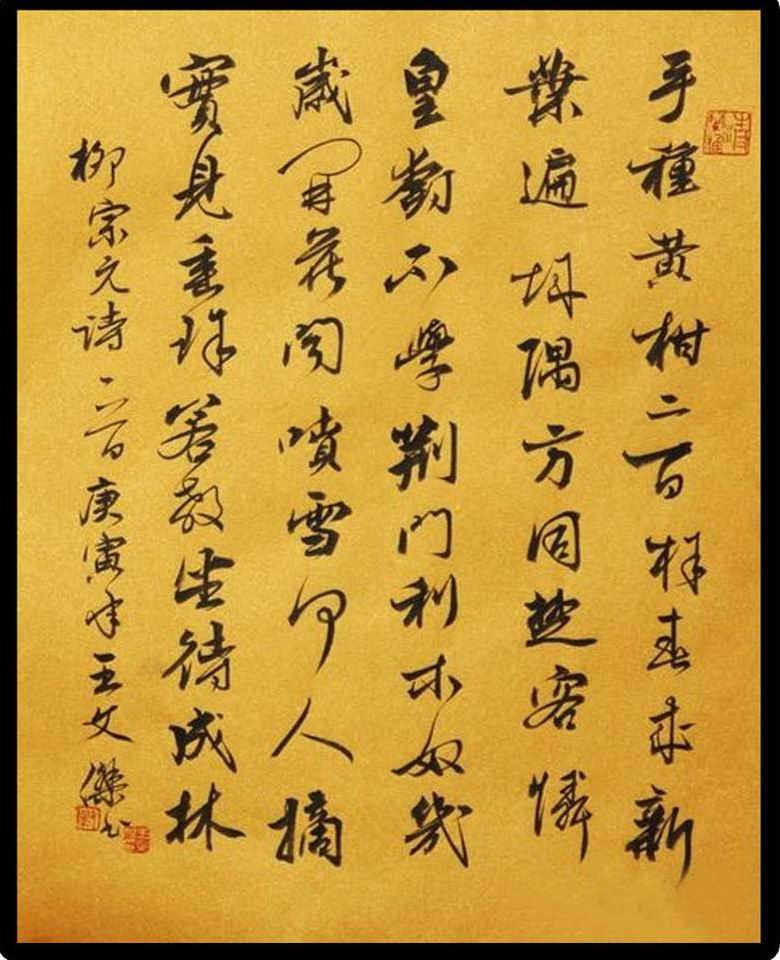 手種黃柑二百株春來新
葉遍城隅方同楚客憐
皇樹不學荊門利木奴幾
歲開花聞噴雪何人摘
實見垂珠若教坐待成林
柳宗元詩一首庚寅年王文傑書